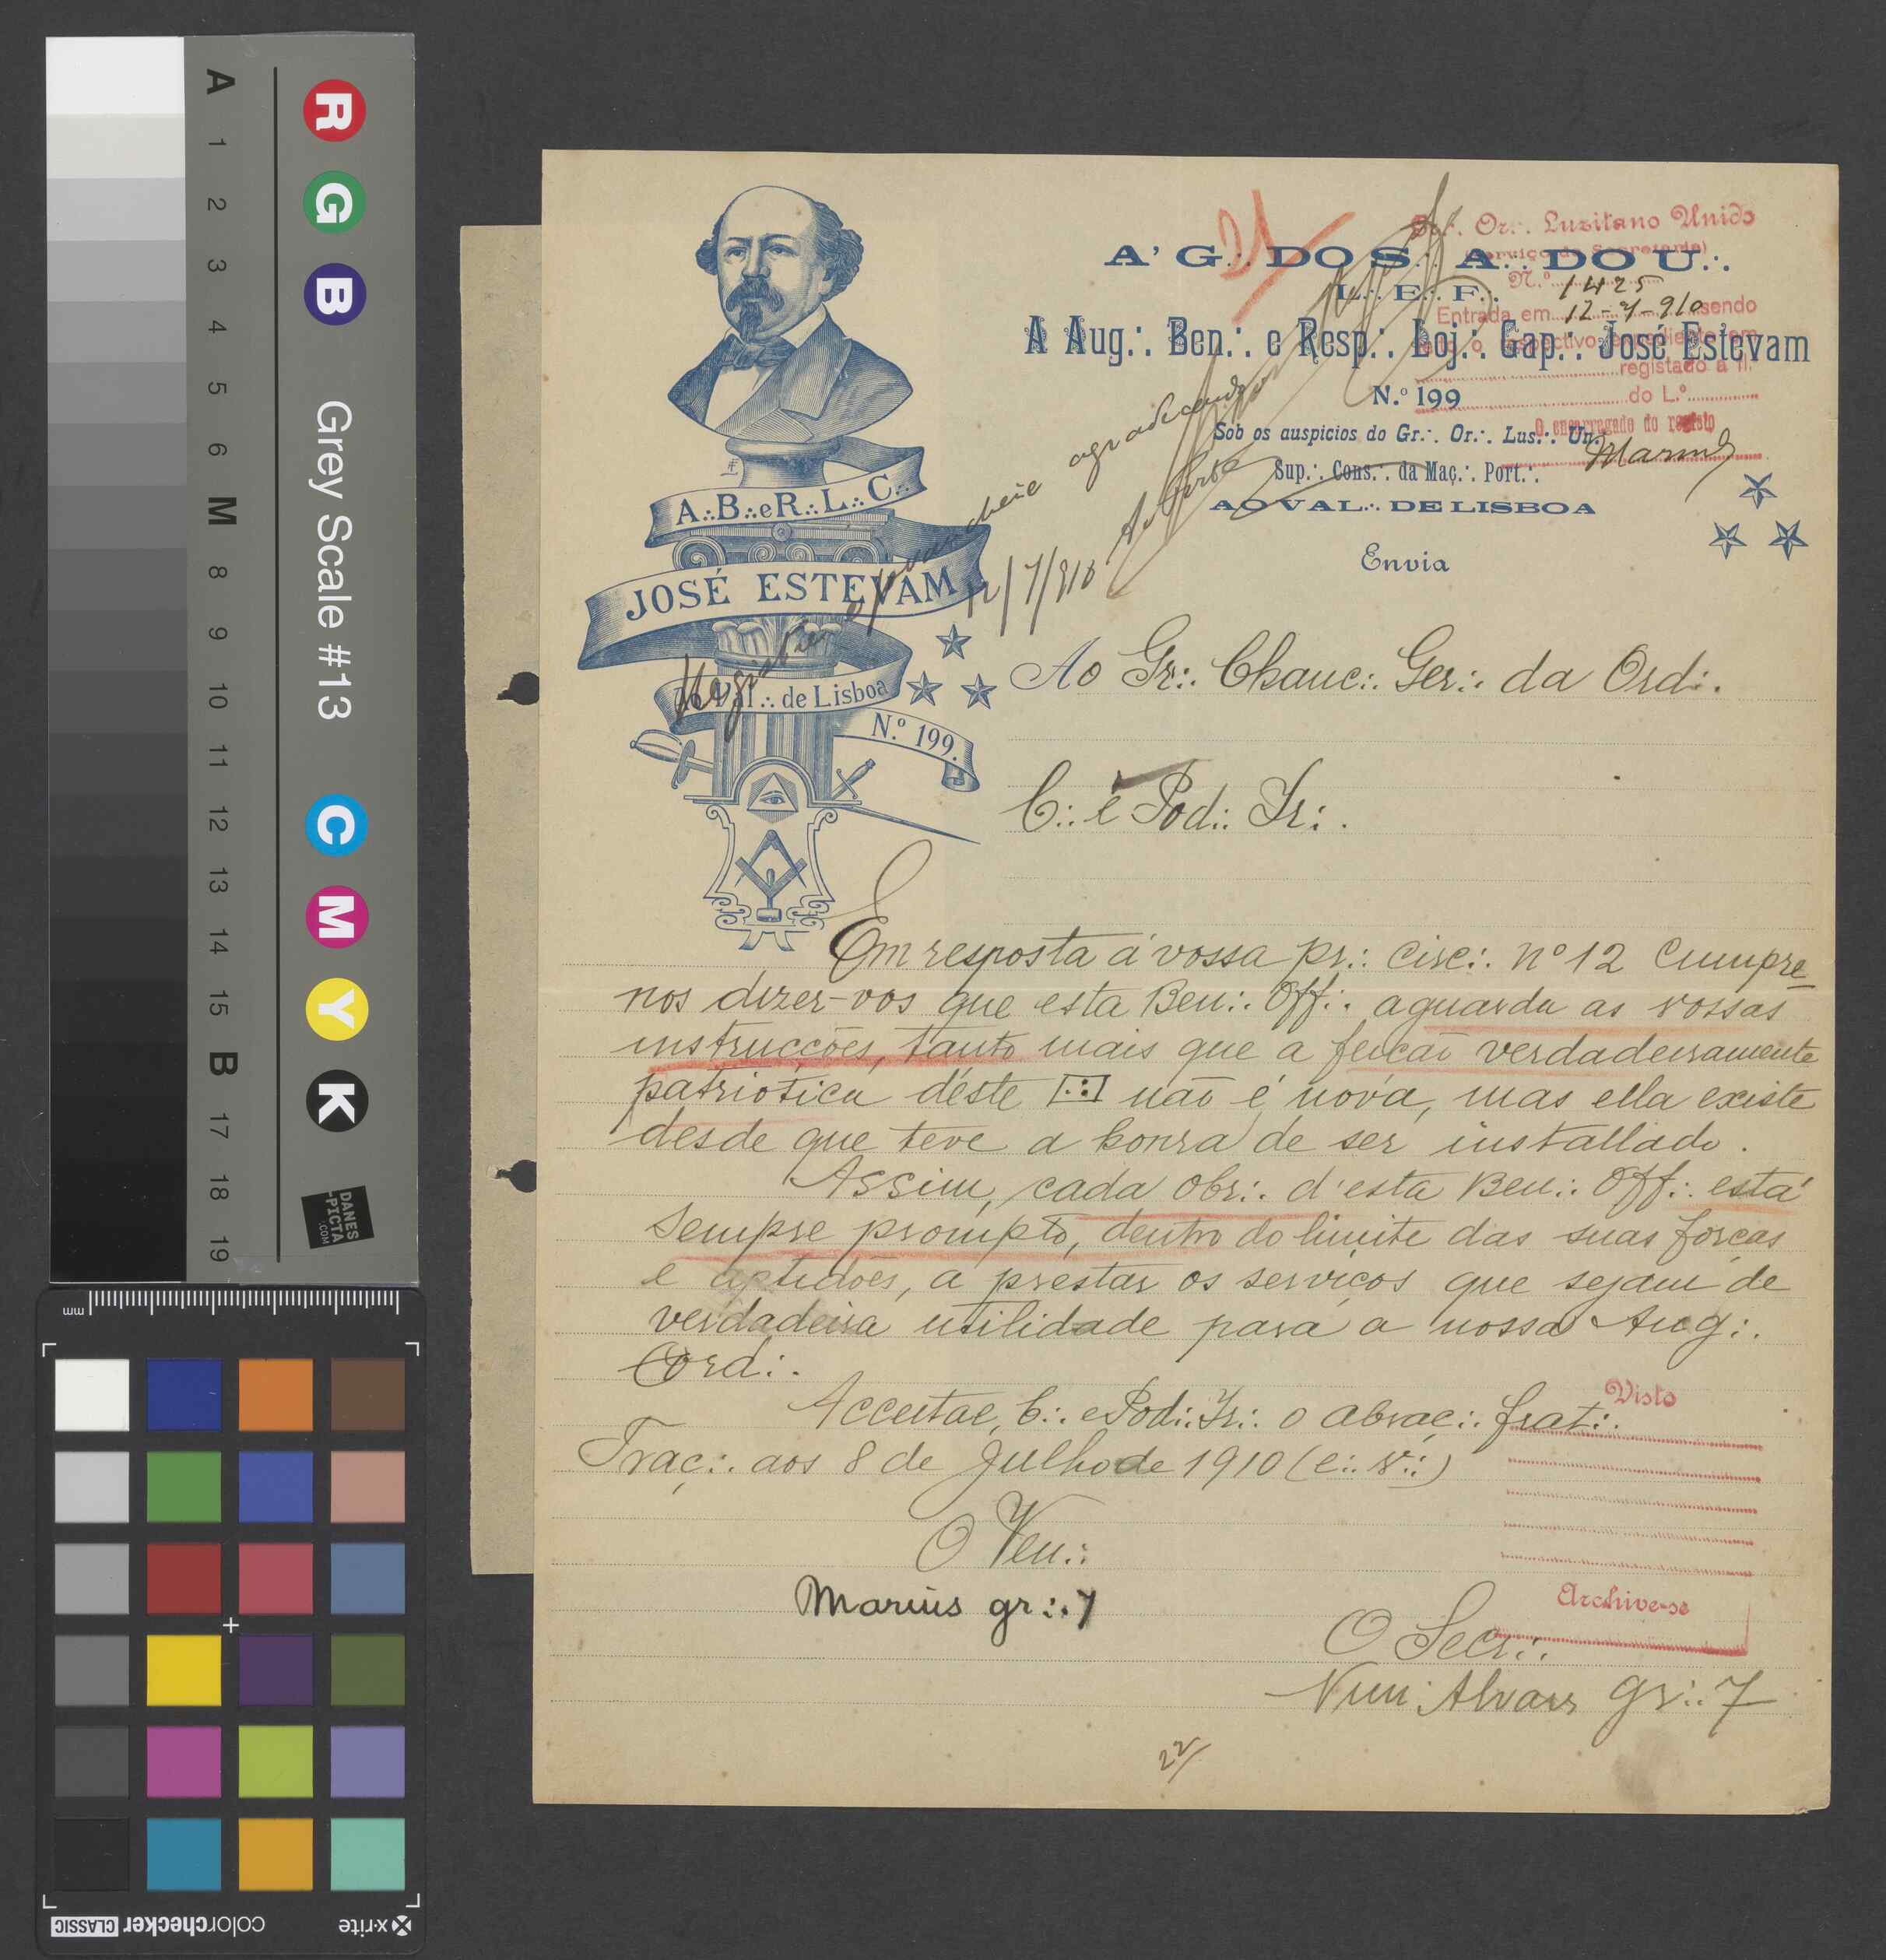 A' G∴ DO S∴ A∴ DO U∴
L∴ E∴ F∴
A Aug∴ Ben∴ e Resp∴ Loj∴ Cap∴ José Estevam
N.º 199
Sob os auspicios do Gr∴ Or∴ Lus∴ Un∴
Sup∴ Cons∴ da Maç∴ Port∴
AO VAL∴ DE LISBOA
Envia
21
Gr∴ Or∴ Luzitano Unido
(Serviço da Secretaria)
N.º 1425
Entrada em 12-7-910 sendo
dado o respectivo expediente em
registado a fl.
do L.º
O encarregado do registo
A∴B∴eR∴L∴C∴
JOSÉ ESTEVAM
Ao Val∴ de Lisboa
N.º 199.
agradecendo
12/7/910
Ao Gr∴ Chanc∴ Ger∴ da Ord∴
C∴ e Pod∴ Ir∴
Em resposta á vossa pr∴ circ∴ nº 12 cumpre
nos dizer-vos que esta Ben∴ Off∴ aguarda as vossas
instrucções, tanto mais que a feição verdadeiramente
patriotica déste [∴] não é nova, mas ella existe
desde que teve a honra de ser installado.
Assim, cada obr∴ d'esta Ben∴ Off∴ está
sempre prompto, dentro do limite das suas forças
e aptidões, a prestar os serviços que sejam de
verdadeira utilidade para a nossa Aug∴
Ord∴
Acceitae, C∴ e Pod∴ Ir∴ o abraç∴ frat∴
Traç∴ aos 8 de Julho de 1910 (e∴ v∴)
Visto
O Ven∴
Marius gr∴ 7
Archive-se
O Secr∴
Nun'Alvares gr∴ 7
22
A 1 2 3 4 5 6 M 8 9 10 11 12 13 14 15 B 17 18 19
R G B
Grey Scale #13
C M Y K
DANES
-PICTA
.COM
mm
x-rite
colorchecker CLASSIC